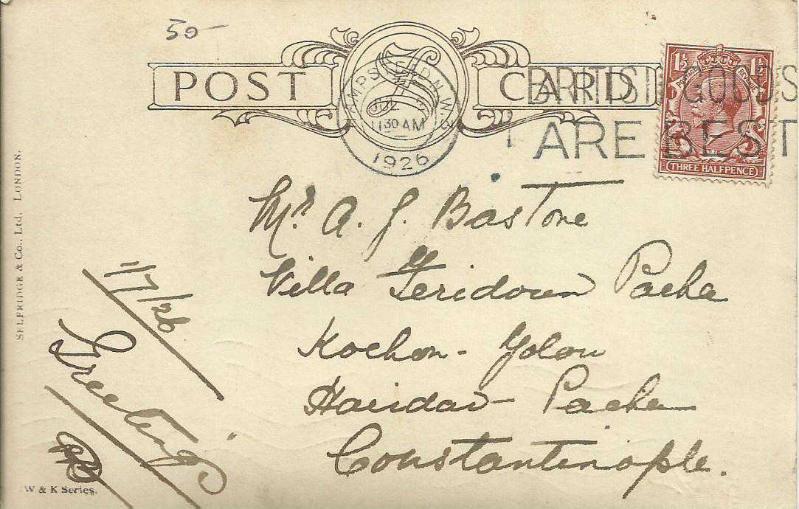 50-
POST CARD
HAMPSTEAD N.W.3
JUL
11 30 AM
1926
BRITISH GOODS
ARE BEST
1½ 1½
THREE HALFPENCE
Mr. A. J. Bastone
Villa Feridoun Pacha
Kochou-Yolou
Haidar-Pacha
Constantinople.
1/7/26
Greetings
SELFRIDGE & CO., LTD. LONDON.
W & K Series.